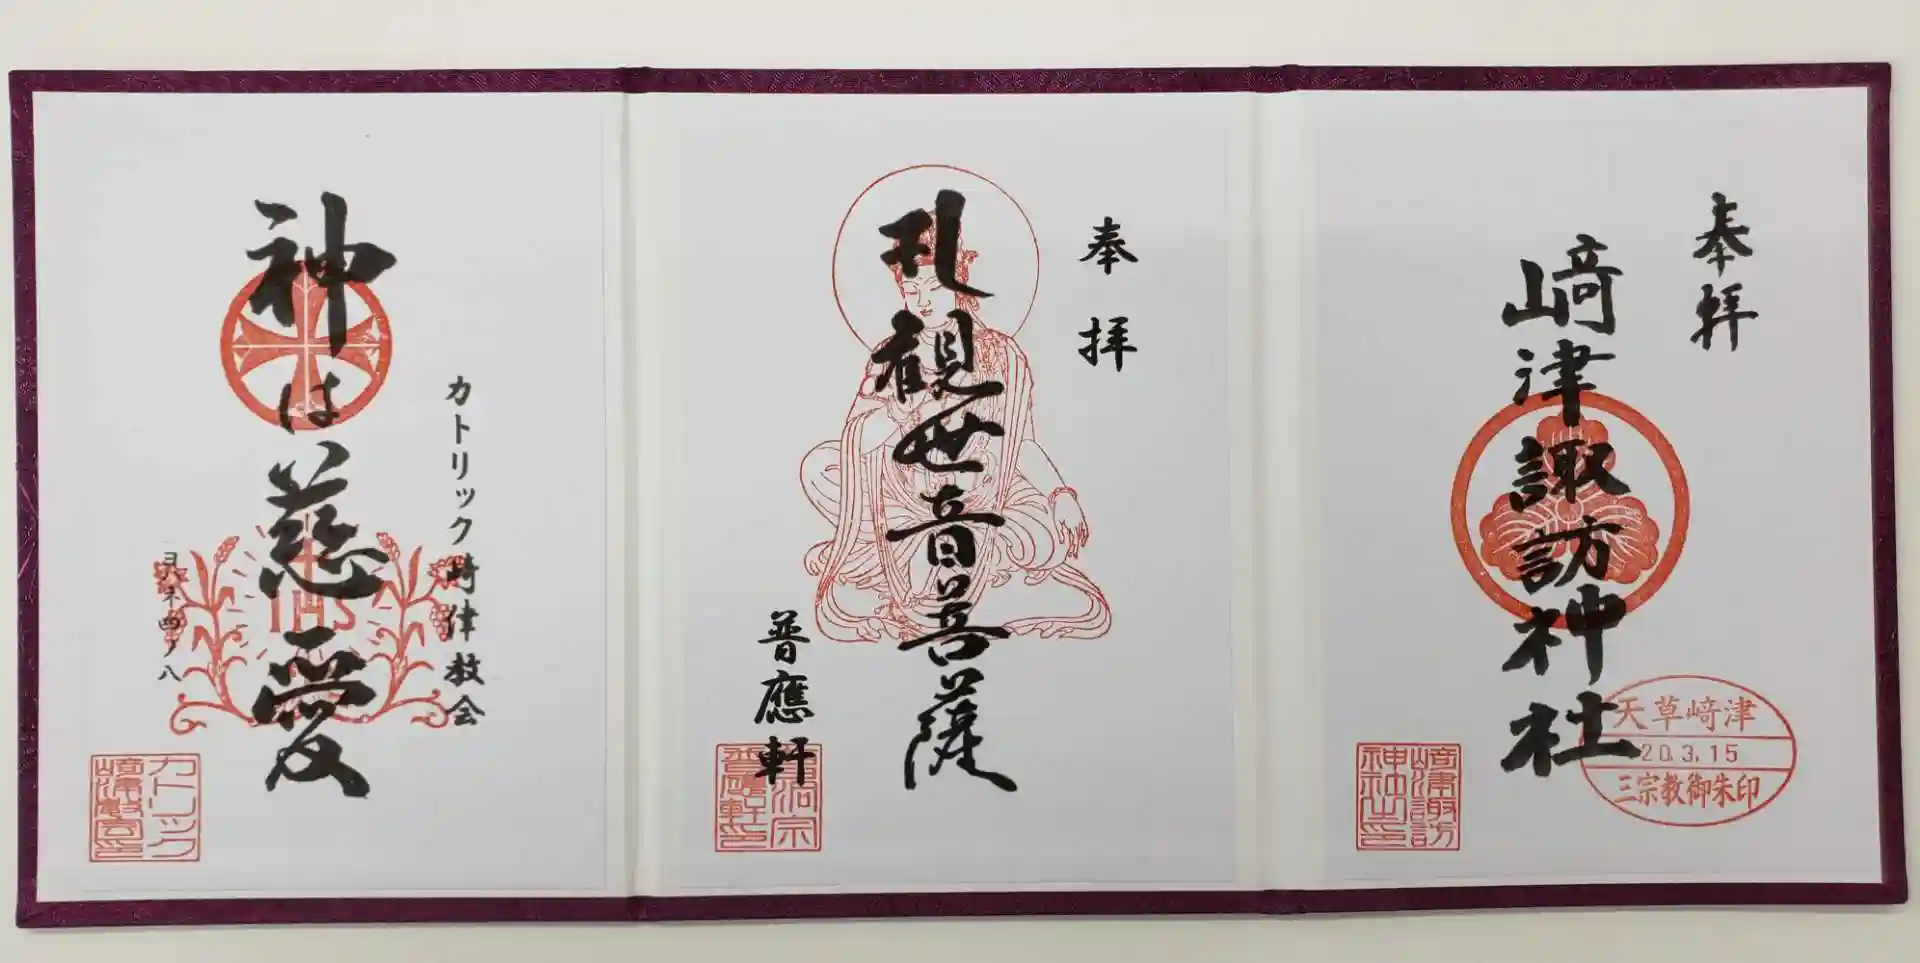 奉拝
﨑津諏訪神社
天草﨑津
20.3.15
三宗教御朱印
﨑津諏訪
神社之印
奉拝
礼観世音菩薩
普應軒
曹洞宗
普應軒印
カトリック﨑津教会
神は慈愛
IHS
ヨハネ四ノ八
カトリック
﨑津教会印